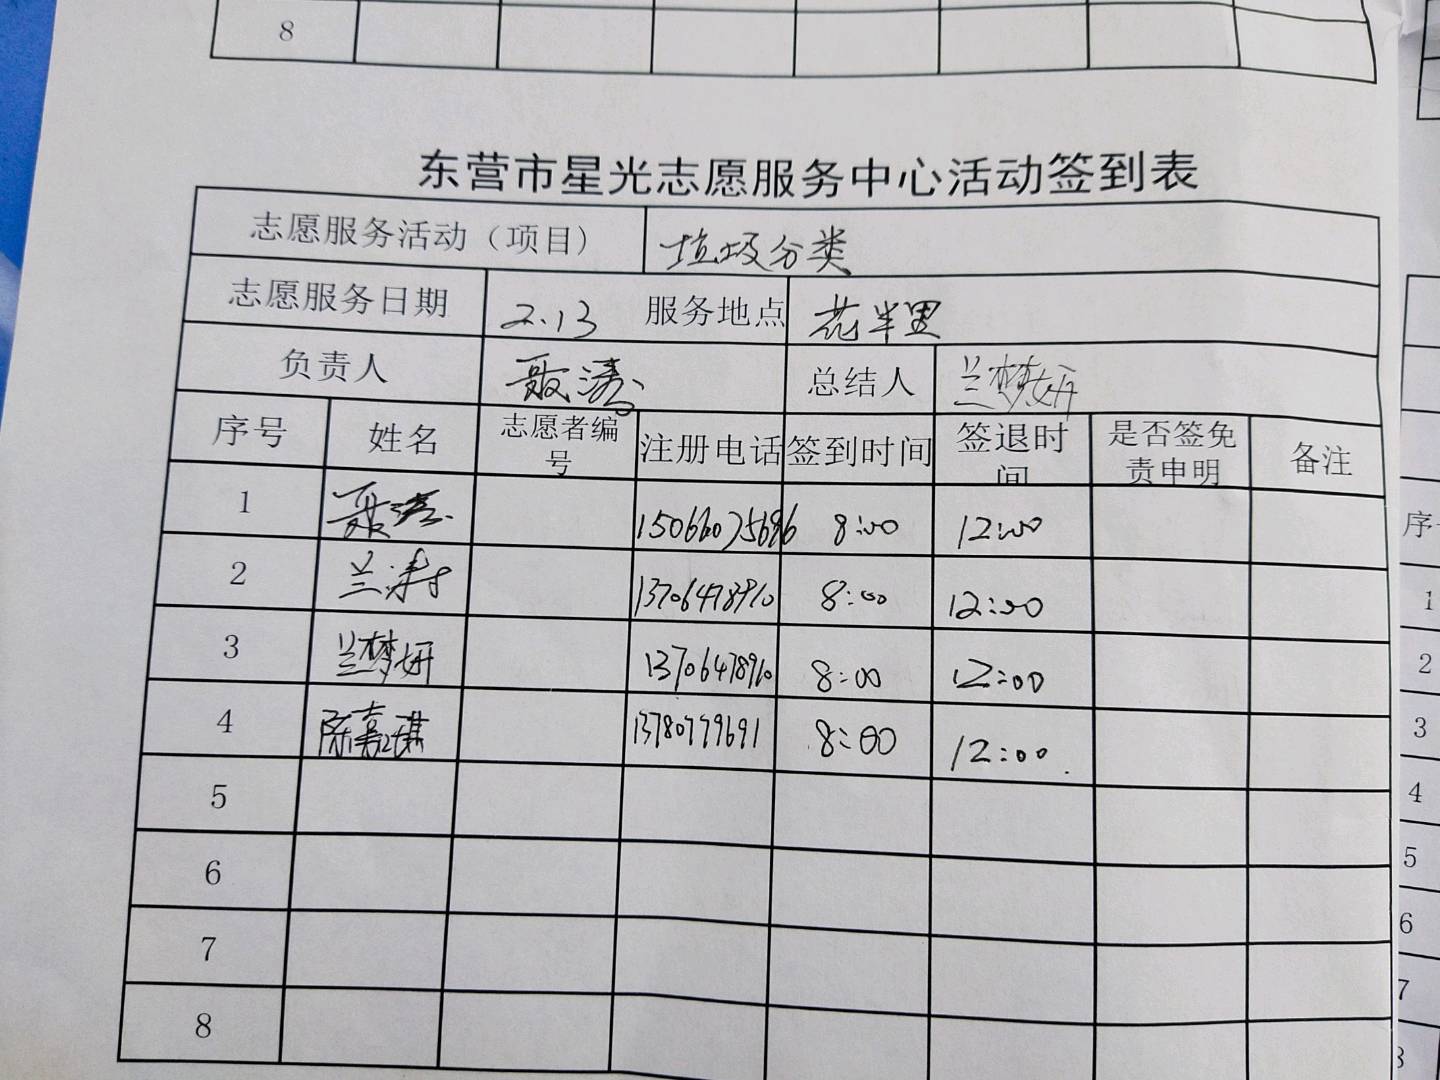 8
东营市星光志愿服务中心活动签到表
志愿服务活动（项目） 垃圾分类
志愿服务日期 2.13 服务地点 花半里
负责人 聂涛 总结人 兰梦妍
序号 姓名 志愿者编号 注册电话 签到时间 签退时间 是否签免责申明 备注
1 聂涛 8:00 12:00
2 兰涛 13706478910 8:00 12:00
3 兰梦妍 13706478910 8:00 12:00
4 陈嘉琪 13780779691 8:00 12:00
5
6
7
8
序
1
2
3
4
5
6
7